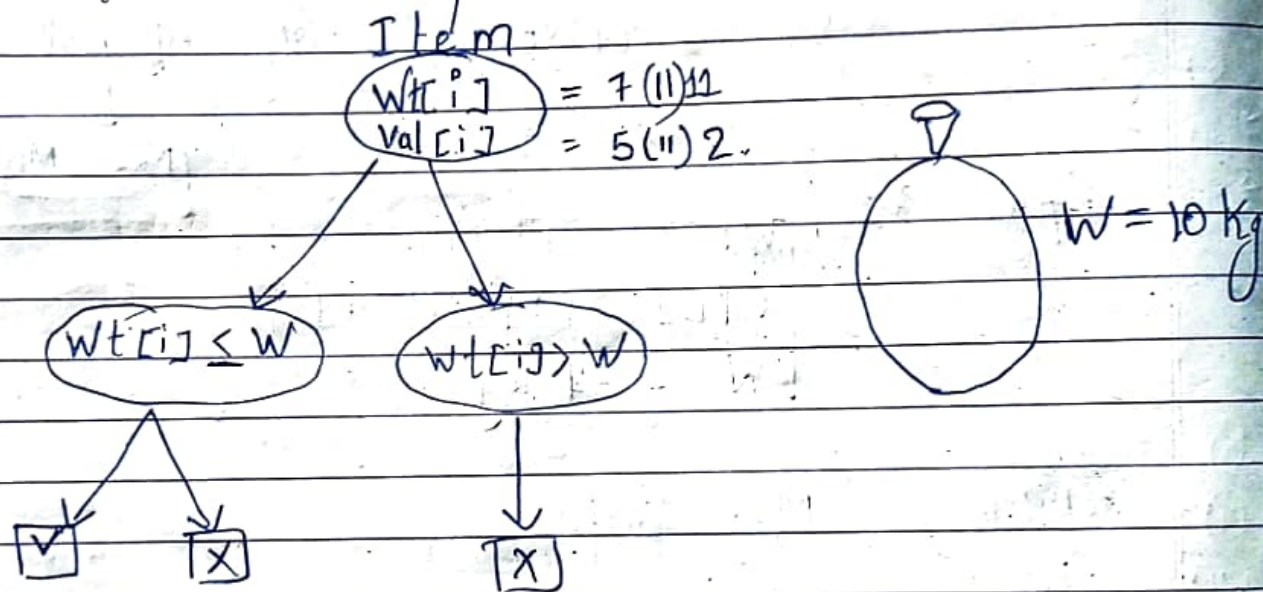 Item
Wt[i] = 7 (11) 11
Val[i] = 5 (11) 2.
W = 10 kg
Wt[i] ≤ W
wt[i] > W
✓ X X